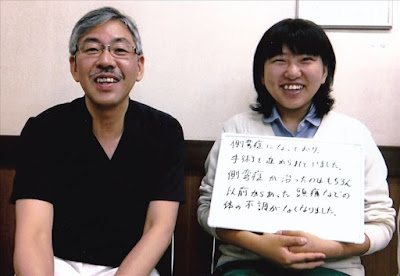 側弯症になっており、
手術も進められていました。
側弯症が治ったのはもちろん
以前からあった頭痛などの
体の不調がなくなりました。